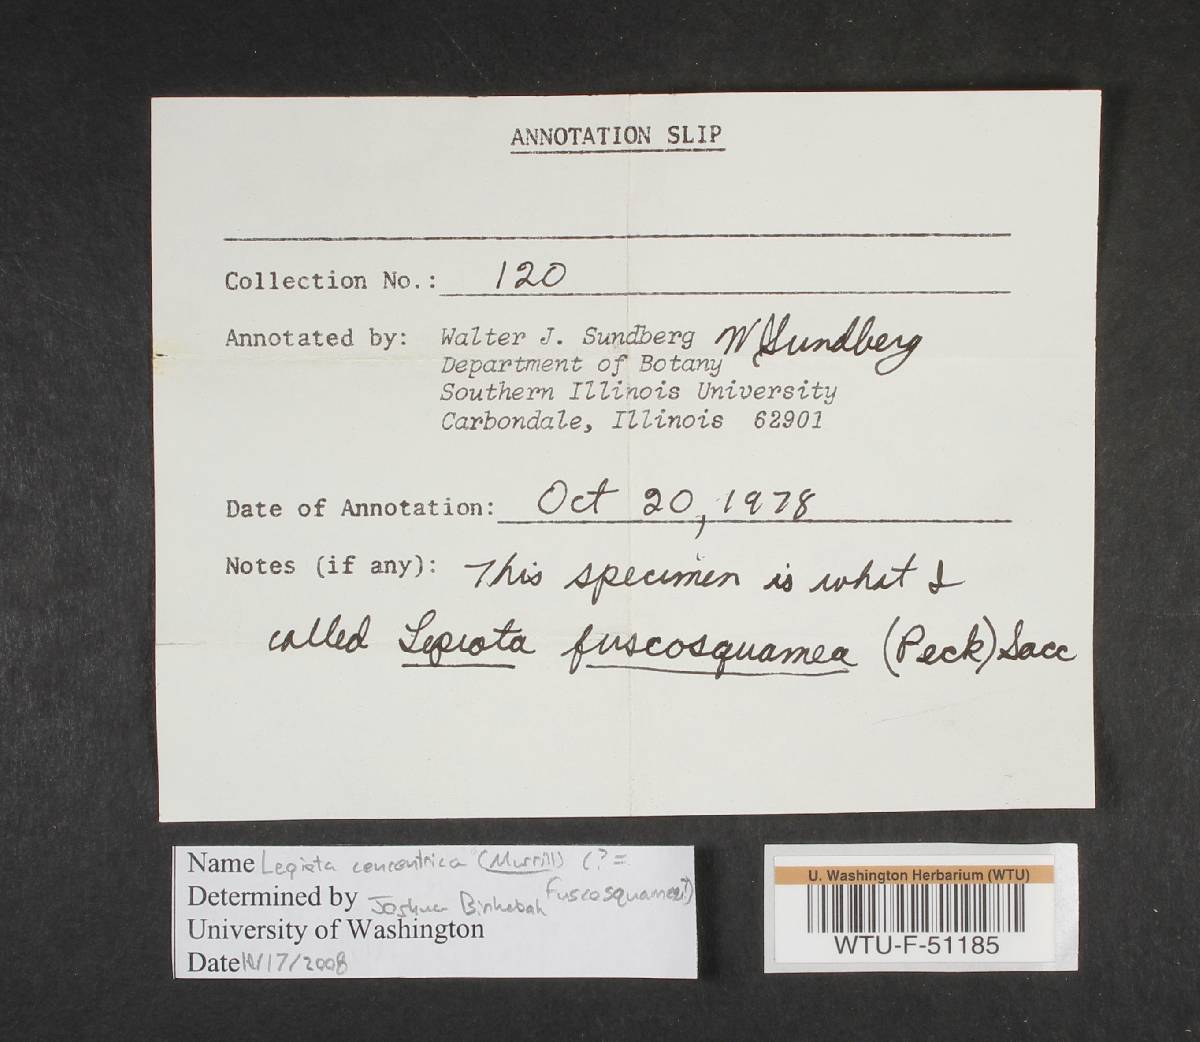 ANNOTATION SLIP
Collection No.: 120
Annotated by: Walter J. Sundberg WJSundberg
Department of Botany
Southern Illinois University
Carbondale, Illinois 62901
Date of Annotation: Oct 20, 1978
Notes (if any): This specimen is what I
called Lepiota fuscosquamea (Peck) Sacc
Name Lepiota concentrica (Murrill) (?=
fuscosquamea?)
Determined by Joshua
University of Washington
Date /17/2008
U. Washington Herbarium (WTU)
WTU-F-51185